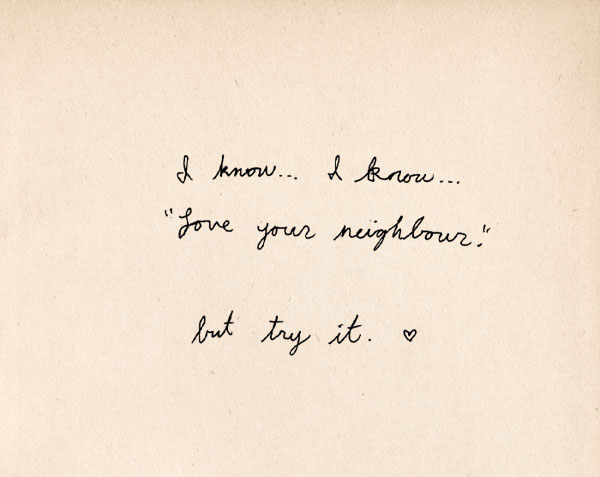 I know... I know...
"Love your neighbour."
but try it. ♡